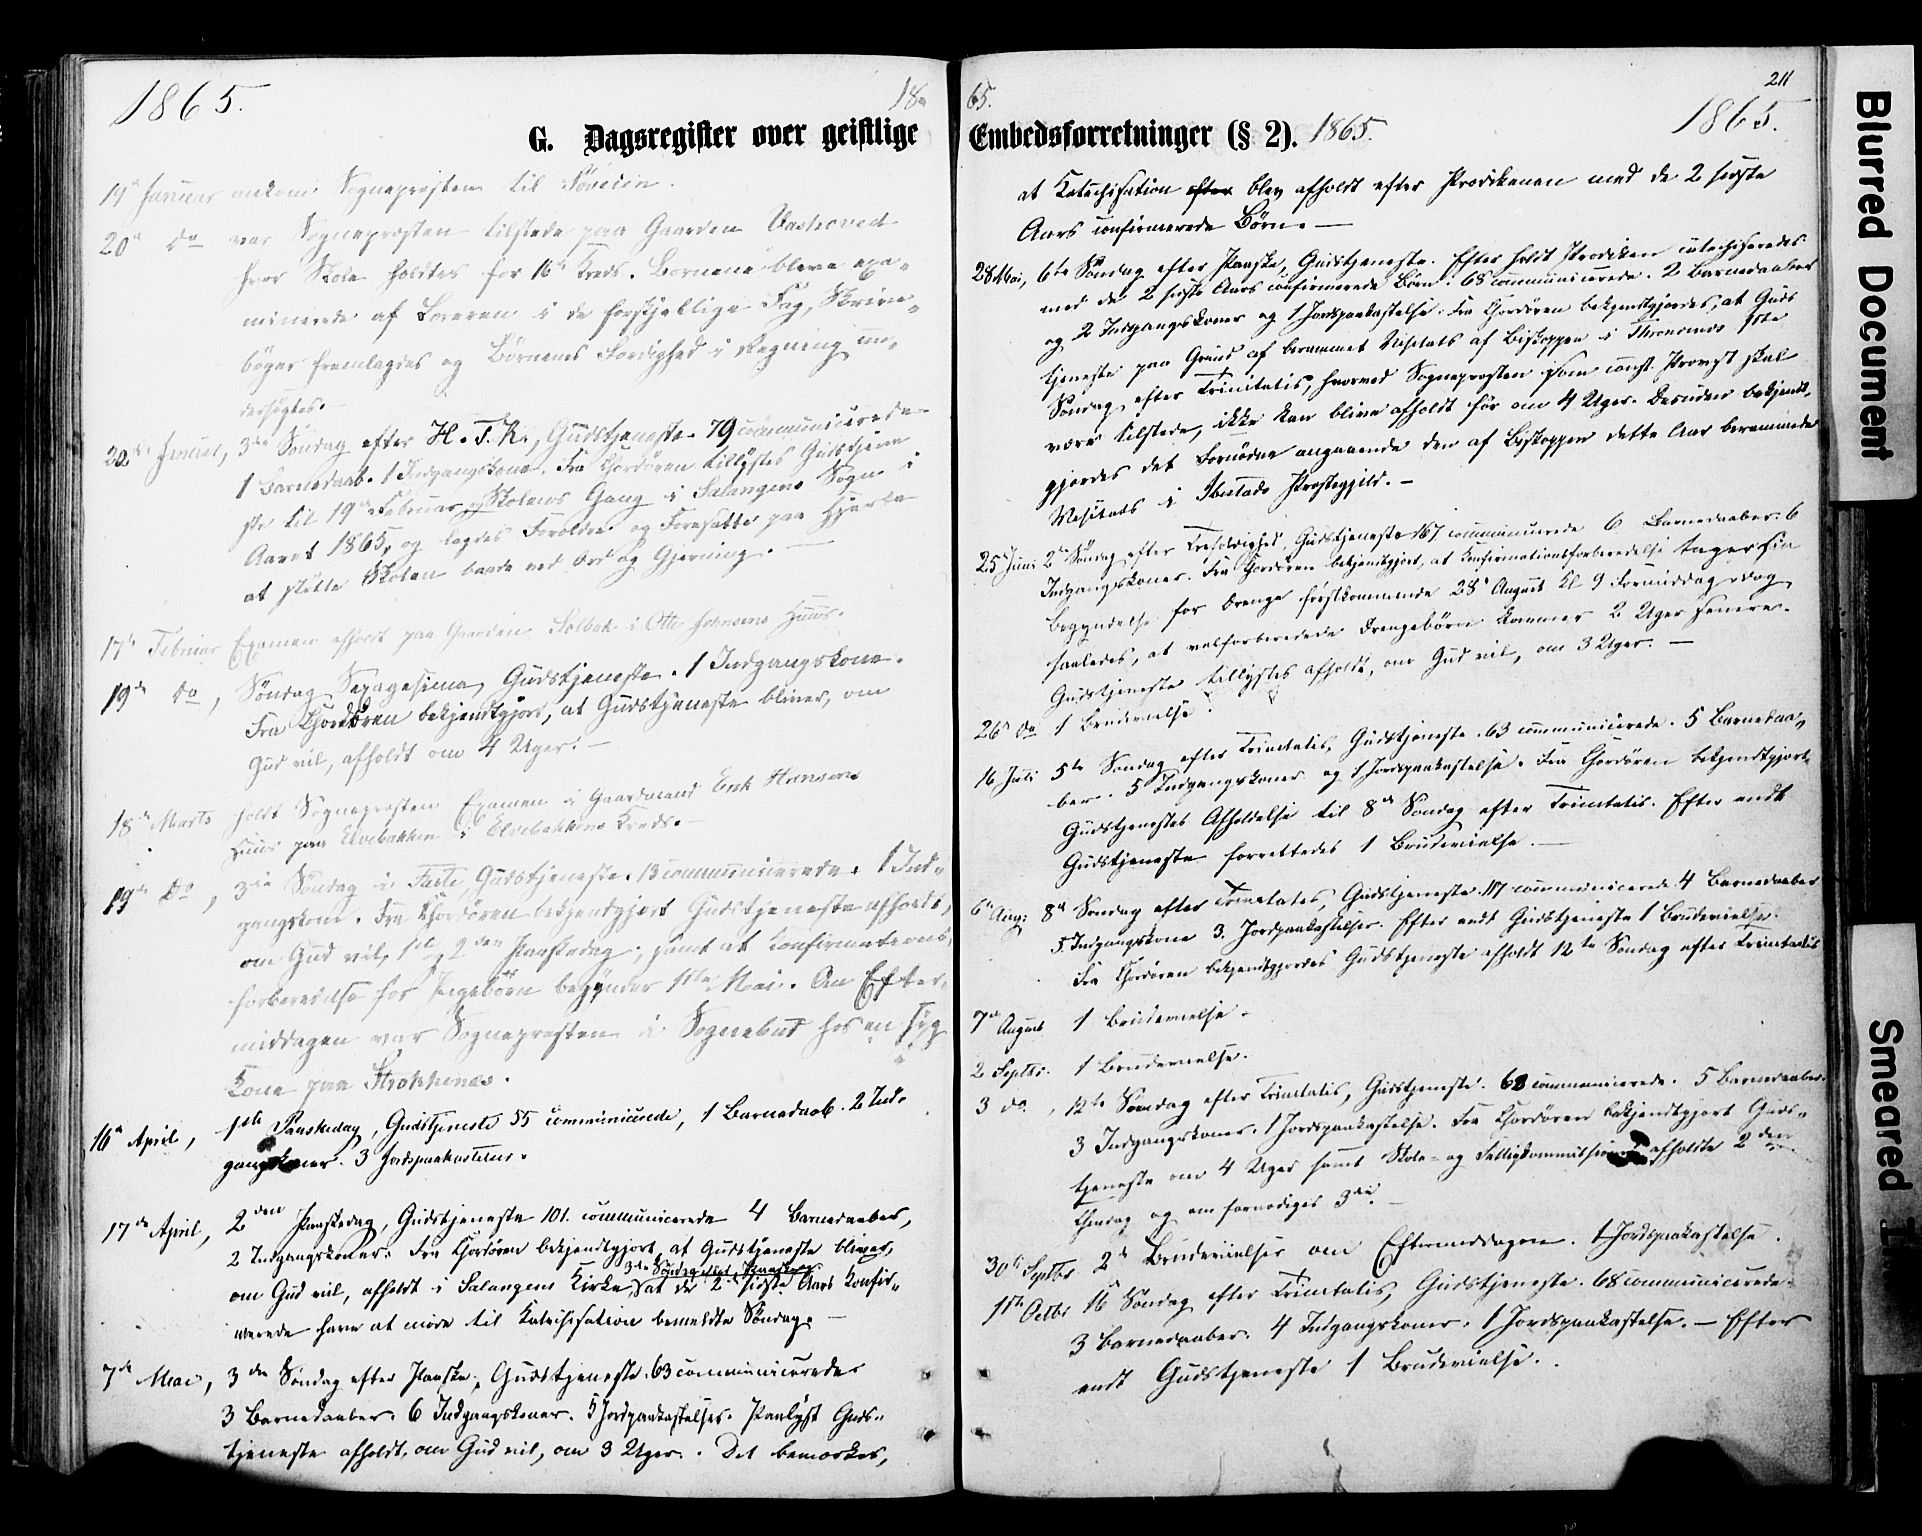 1865.
18
G. Dagsregister over geistlige
19de Januar ankom Sognepræsten til
20de do var Sognepræsten tilstede paa Gaarden
hvor Skole holdtes for 16de Kreds. Børnene bleve exa-
minerede af Læreren i de forskjellige Fag, Skrive-
bøger fremlagdes og Børnenes Færdighed i Regning un-
dersøgtes.
22de Januar, 3die Søndag efter H. 3. K., Gudstjeneste. 79 communicerede
1 Barnedaab. 1 Indgangskone. Fra Chordøren tillystes Gudstjene-
ste til 19de Februar, Skolens Gang i Salangens Sogn i
Aaret 1865, og lagdes Forældre og Foresatte paa Hjerte
at støtte Skolen baade ved Ord og Gjerning. —
17de Februar Examen afholdt paa Gaarden Solbak i Otte Johnsens Huus.
19de do, Søndag Sexagesima, Gudstjeneste. 1 Indgangskone.
Fra Chordøren bekjendtgjort, at Gudstjeneste bliver, om
Gud vil, afholdt om 4 Uger. —
18de Marts holdt Sognepræsten Examen i Gaardmand Erik Hansens
Huus paa Elvebakken i Elvebakkens Kreds. —
19de do, 3die Søndag i Faste, Gudstjeneste. 13 communicerede. 1 Ind-
gangskone. Fra Chordøren bekjendtgjort Gudstjeneste afholdt,
om Gud vil, 1ste 2den Paaskedag, samt at Confirmations-
forberedelse for Pigebørn begynder 1ste Mai. Om Efter-
middagen var Sognepræsten i Sognebud hos en syg
Kone paa
16de April, 1ste Paaskedag, Gudstjeneste 55 communicerede, 1 Barnedaab. 2 Ind-
gangskoner. 3 Jordspaakastelser.
17de April, 2den Paaskedag, Gudstjeneste 101. communicerede 4 Barnedaaber,
2 Indgangskoner. Fra Chordøren bekjendtgjort, at Gudstjeneste bliver,
3die Søndag efter Paaske
om Gud vil, afholdt i Salangens Kirke, at de 2de sidste Aars Konfir-
merede have at møde til Katechisation bemeldte Søndag. —
7de Mai, 3die Søndag efter Paaske, Gudstjeneste. 63 communicerede
3 Barnedaaber. 6 Indgangskoner. 5 Jordpaakastelser. Paalyst Guds-
tjeneste afholdt, om Gud vil, om 3 Uger. Det bemærkes,
65.
211
1865.
Embedsforretninger (§ 2). 1865.
at Katechisation efter blev afholdt efter Prædikenen med de 2 sidste
Aars confirmerede Børn. —
28 Mai, 6te Søndag efter Paaske, Gudstjeneste. Efter holdt Prædiken catechiseredes
med de 2 sidste Aars confirmerede Børn. 68 communicerede. 2 Barnedaaber
og 2 Indgangskoner og 1 Jordpaakastelse. Fra Chordøren bekjendtgjordes, at Guds
tjeneste paa Grund af berammet Visitats af Biskoppen i Tromsø 1ste
Søndag efter Trinitatis, hvorved Sognepræsten som const. Provst skal
være tilstede, ikke kan blive afholdt før om 4 Uger. Desuden bekjendt-
gjordes det Fornødne angaaende den af Biskoppen dette Aar berammede
Visitats i Ibestads Præstegjeld. —
25 Juni 2den Søndag efter Trefoldighed, Gudstjeneste 167 communicerede 6 Barnedaaber. 6
Indgangskoner. Fra Chordøren bekjendtgjort, at Konfirmationsforberedelse tager sin
Begyndelse for Drenge førstkommende 28de August Kl 9 Formiddag
saaledes, at velforberedede Drengebørn kommer 2 Uger senere.
Gudstjeneste tillystes afholdt, om Gud vil, om 3 Uger. —
26de do 1 Brudevielse.
16 Juli 5te Søndag efter Trinitatis, Gudstjeneste. 63 communicerede. 5 Barnedaa-
ber. 5 Indgangskoner og 1 Jordpaakastelse. Fra Chordøren bekjendtgjort
Gudstjenestes Afholdelse til 8de Søndag efter Trinitatis. Efter endt
Gudstjeneste forrettedes 1 Brudevielse. —
6te Aug: 8de Søndag efter Trinitatis, Gudstjeneste. 117 communicerede 4 Barnedaaber
5 Indgangskone 3. Jordpaakastelser. Efter endt Gudstjeneste 1 Brudevielse.
Fra Chordøren bekjendtgjordes Gudstjeneste afholdt 12te Søndag efter Trinitatis
7de August 1 Brudevielse.
2 Septbr. 1 Brudevielse.
3 do., 12te Søndag efter Trinitatis, Gudstjeneste. 68 communicerede. 5 Barnedaaber.
3 Indgangskoner. 1 Jordspaakastelse. Fra Chordøren bekjendtgjort Guds-
tjeneste om 4 Uger samt Skole- og Fattigkommission afholdte 2den
og om fornødiges 3die. —
30te Septbr 2de Brudevielser om Eftermiddagen. 1 Jordspaakastelse.
1ste Octbr 16 Søndag efter Trinitatis, Gudstjeneste. 68 communicerede
3 Barnedaaber. 4 Indgangskoner. 1 Jordspaakastelse. — Efter
endt Gudstjeneste 1 Brudevielse.
Blurred Document
Smeared